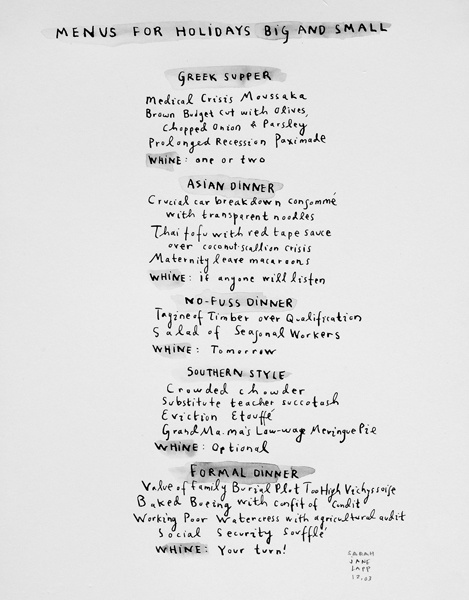 MENUS FOR HOLIDAYS BIG AND SMALL
GREEK SUPPER
Medical Crisis Moussaka
Brown Budget Cut with Olives,
Chopped Onion & Parsley
Prolonged Recession Paximade
WHINE: one or two
ASIAN DINNER
Crucial car breakdown consommé
with transparent noodles
Thai tofu with red tape sauce
over coconut-scallion crisis
Maternity leave macaroons
WHINE: if anyone will listen
NO-FUSS DINNER
Tagine of Timber over Qualification
Salad of Seasonal Workers
WHINE: Tomorrow
SOUTHERN STYLE
Crowded chowder
Substitute teacher succotash
Eviction Etouffé
Grand Ma-ma's Low-wage Meringue Pie
WHINE: Optional
FORMAL DINNER
Value of Family Burial Plot Too High Vichyssoise
Baked Boeing with Confit of Condit
Working Poor Watercress with agricultural audit
Social Security Soufflé
WHINE: Your turn!
SARAH
JANE
LAPP
12.03